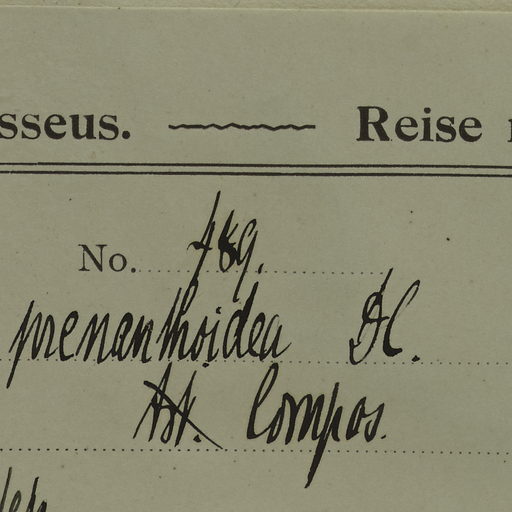 sseus. Reise
No. 489.
prenanthoidea DC.
Ast. Compos.